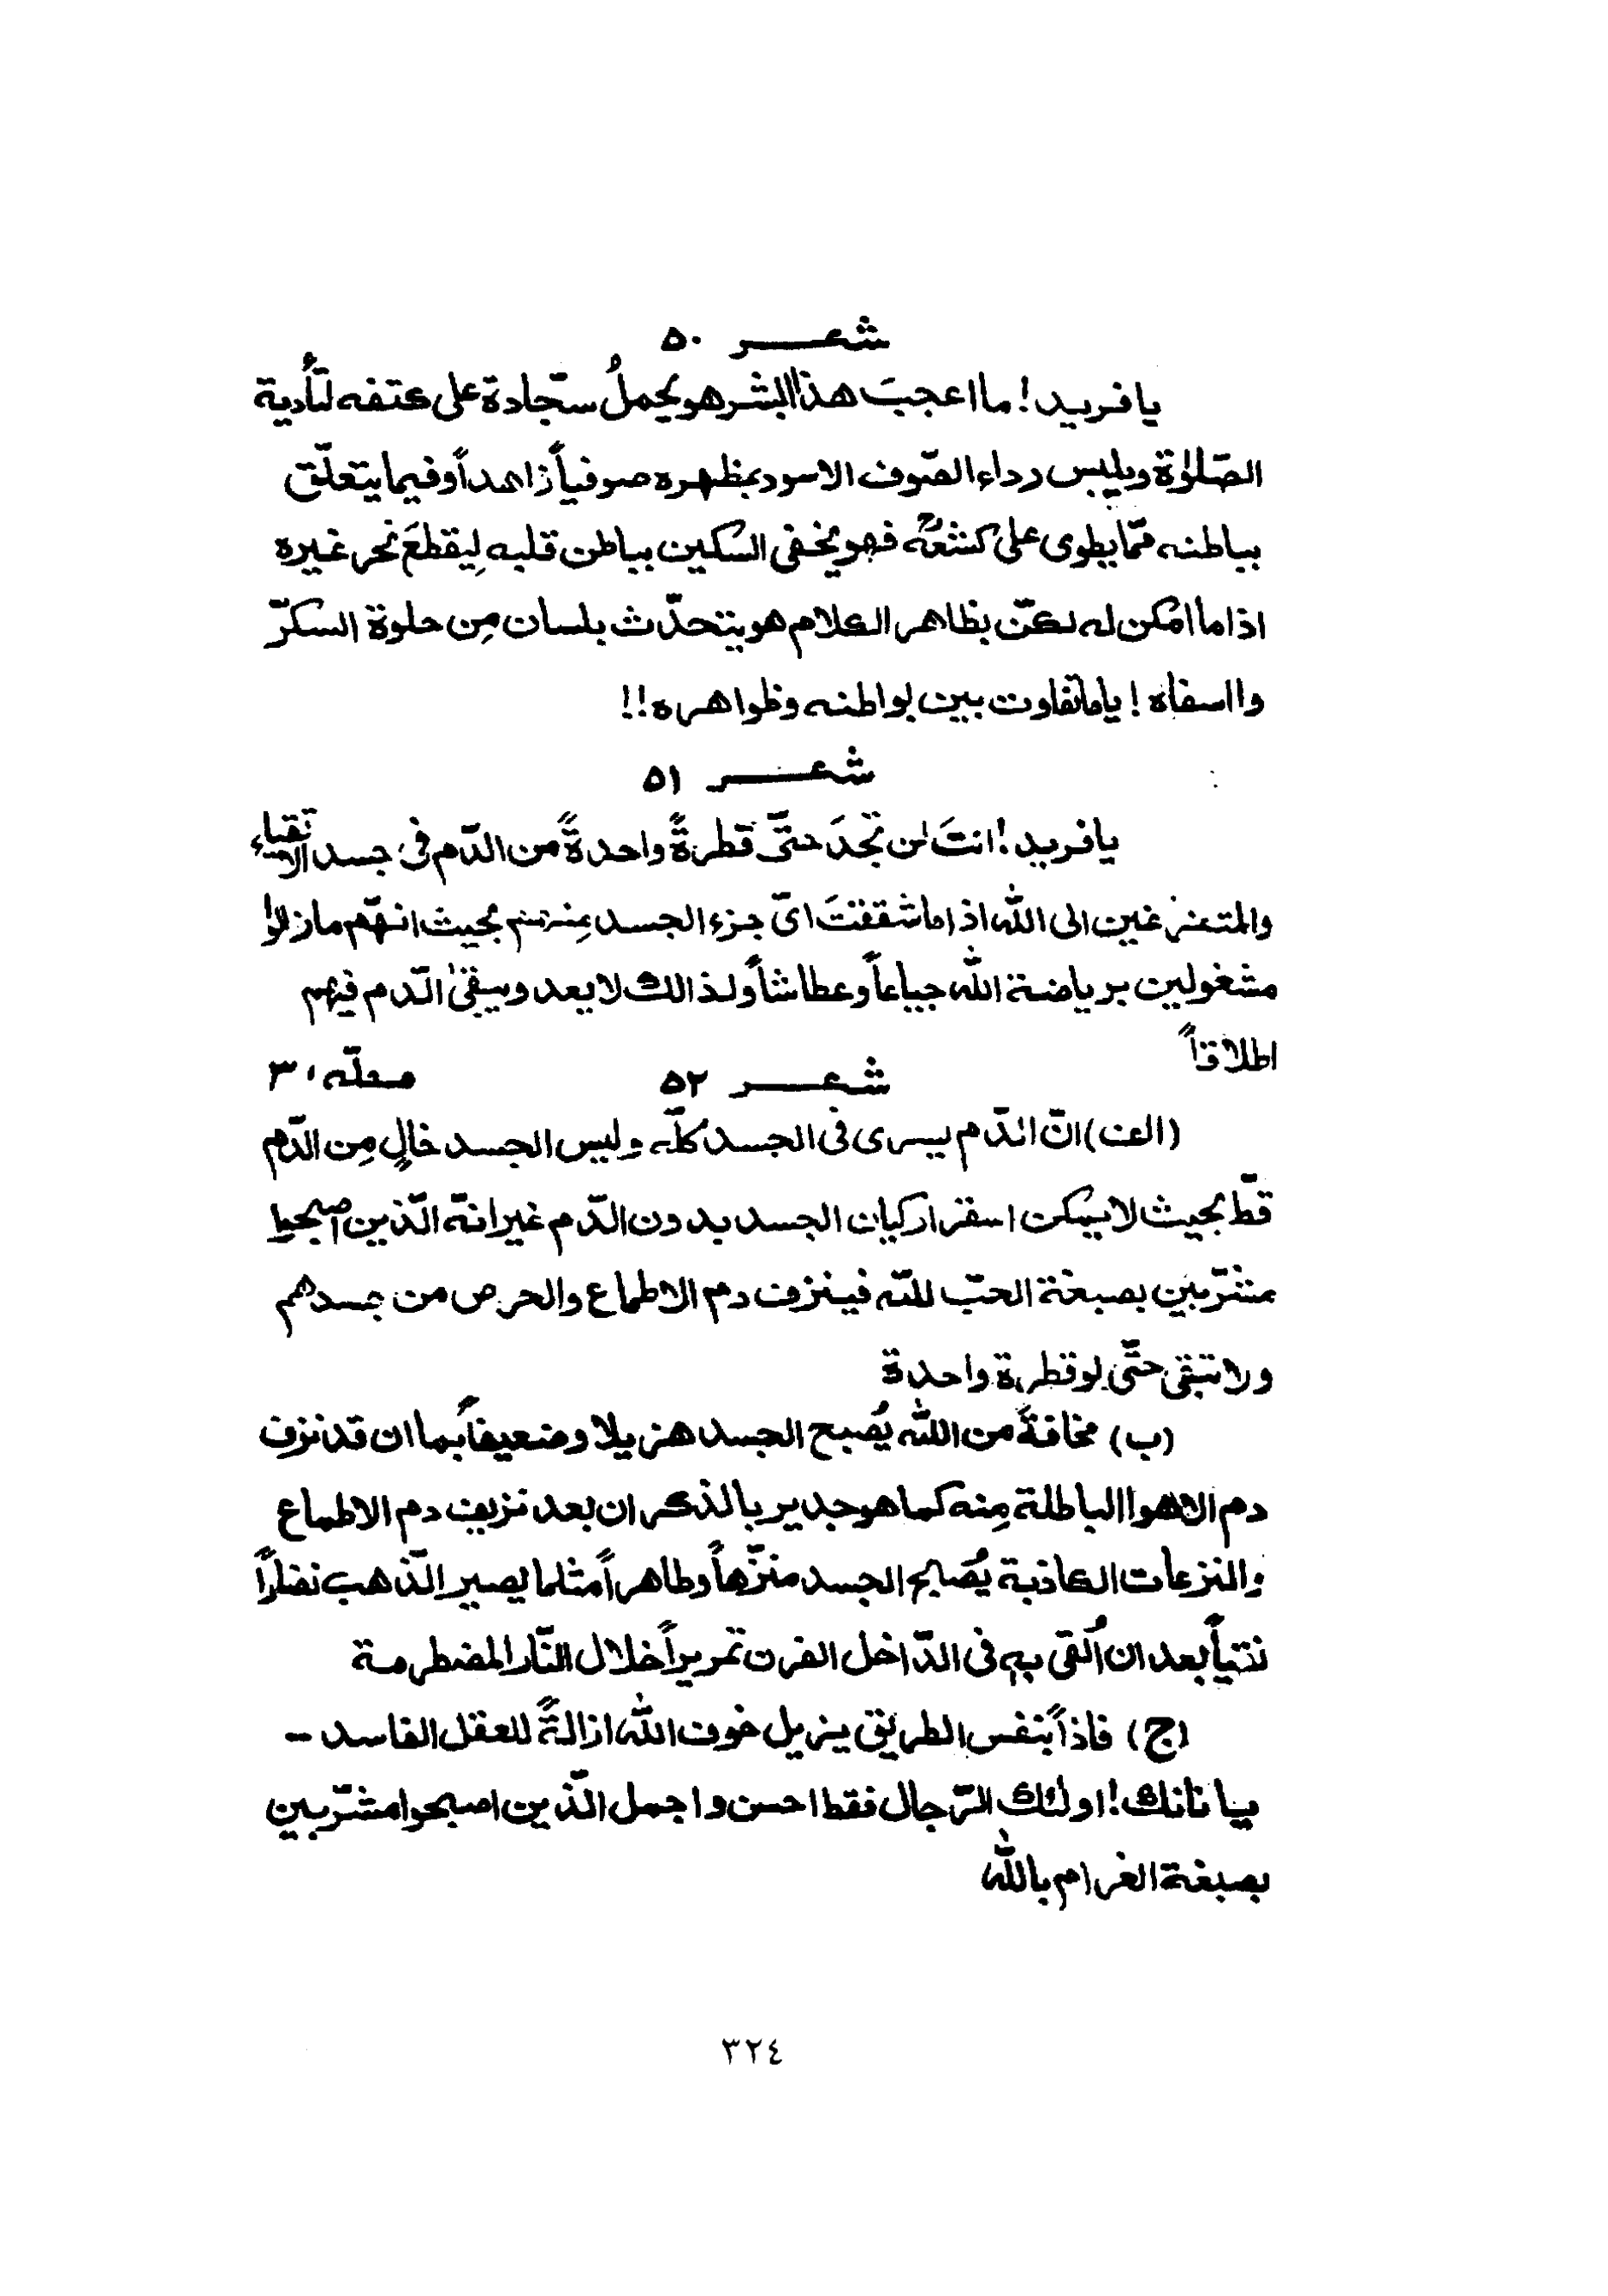 شعر ٥٠
يا فريد! ما اعجبَ هذا البشر هو يحملُ سجّادة على كتفه لتأدية
الصّلوٰة ويلبس رداء الصّوف الاسود بمظهره صوفياً زاهداً وفيما يتعلّق
بباطنه ممّا يطوى على كشحه فهو يخفى السّكين بباطن قلبه لِيقطعَ نحر غيره
اذا ما امكن له لكنّ بظاهر الكلام هو يتحدّث بلسان مِن حلوة السكرّ
وا اسفاه! يا ما تفاوت بين بواطنه وظواهره!!
شعر ٥١
يا فريد! انتَ لن تجدَ حتّى قطرةً واحدةً من الدّم فى جسد الاتقياء
والمتفرغين الى الله اذا ما شققتَ اىّ جزء الجسد مِنهم بحيث انهّم مازالوا
مشغولين برياضة الله جياعاً وعطاشاً ولذالك لا يعد ويبقىٰ الدّم فيهم
اطلاقاً
شعر ٥٢ محلّه ٣،
(الف) انّ الدّم يسرى فى الجسد كلّه وليس الجسد خالٍ مِن الدّم
قطّ بحيث لا يمكن استقرار كيان الجسد بدون الدّم غير انّه الّذين اصبحوا
متشرّبين بصبغة الحبّ للّه فينزف دم الاطماع والحرص من جسدهم
ولا تبقى حتّى لو قطرة واحدة
(ب) مخافةً من الله يُصبح الجسد هزيلا وضعيفاً بما ان قد نزف
دم الاهواا الباطلة مِنه كما هو جدير بالذكر ان بعد نزيف دم الاطماع
والنزعات الكاذبة يُصبح الجسد منزّهاً وطاهراً مثلما يصير الّذهب نضاراً
نقياً بعد ان اُلقى بهِ فى الدّاخل الفرن تمريراً خلال النّار المضطرمة
(ج) فاذاً بنفس الطريق يزيل خوف الله ازالةً للعقل الفاسد -
يا نانك! اولئك الرّجال فقط احسن واجمل الّذين اصبحوا مشرّبين
بصبغة الغرام بالله
٣٢٤